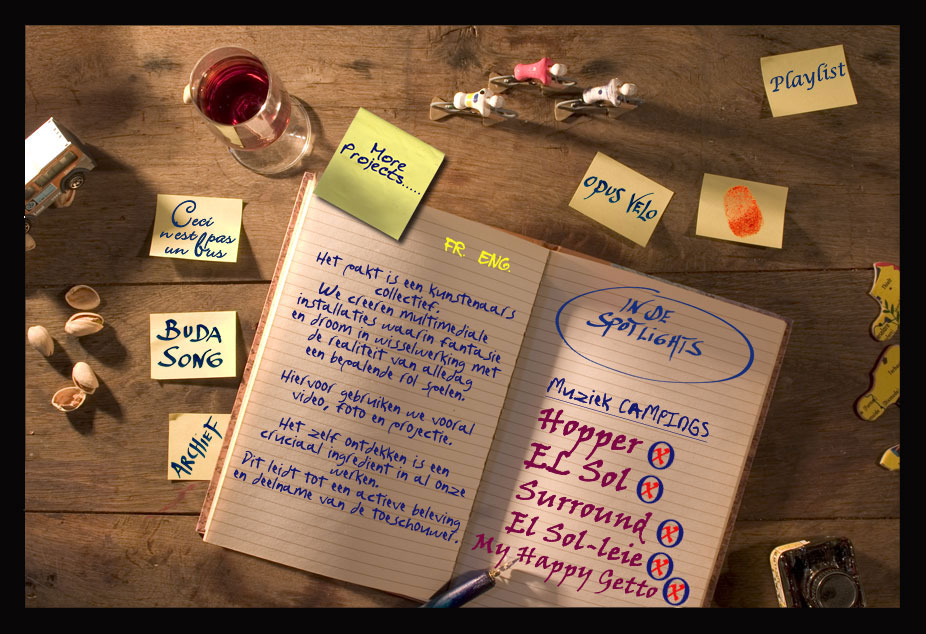 Playlist
More
Projects.....
OPUS VELO
Ceci
n'est pas
un bus
BUDA
SONG
ARCHIEF
FR. ENG.
Het pakt is een kunstenaars
collectief.
We creëren multimediale
installaties waarin fantasie
en droom in wisselwerking met
de realiteit van alledag
een bepalende rol spelen.
Hiervoor gebruiken we vooral
video, foto en projectie.
Het zelf ontdekken is een
cruciaal ingredient in al onze
werken.
Dit leidt tot een actieve beleving
en deelname van de toeschouwer.
IN DE
SPOTLIGHTS
Muziek CAMPINGS
Hopper x
EL Sol x
Surround x
El Sol-leie x
My Happy Getto x